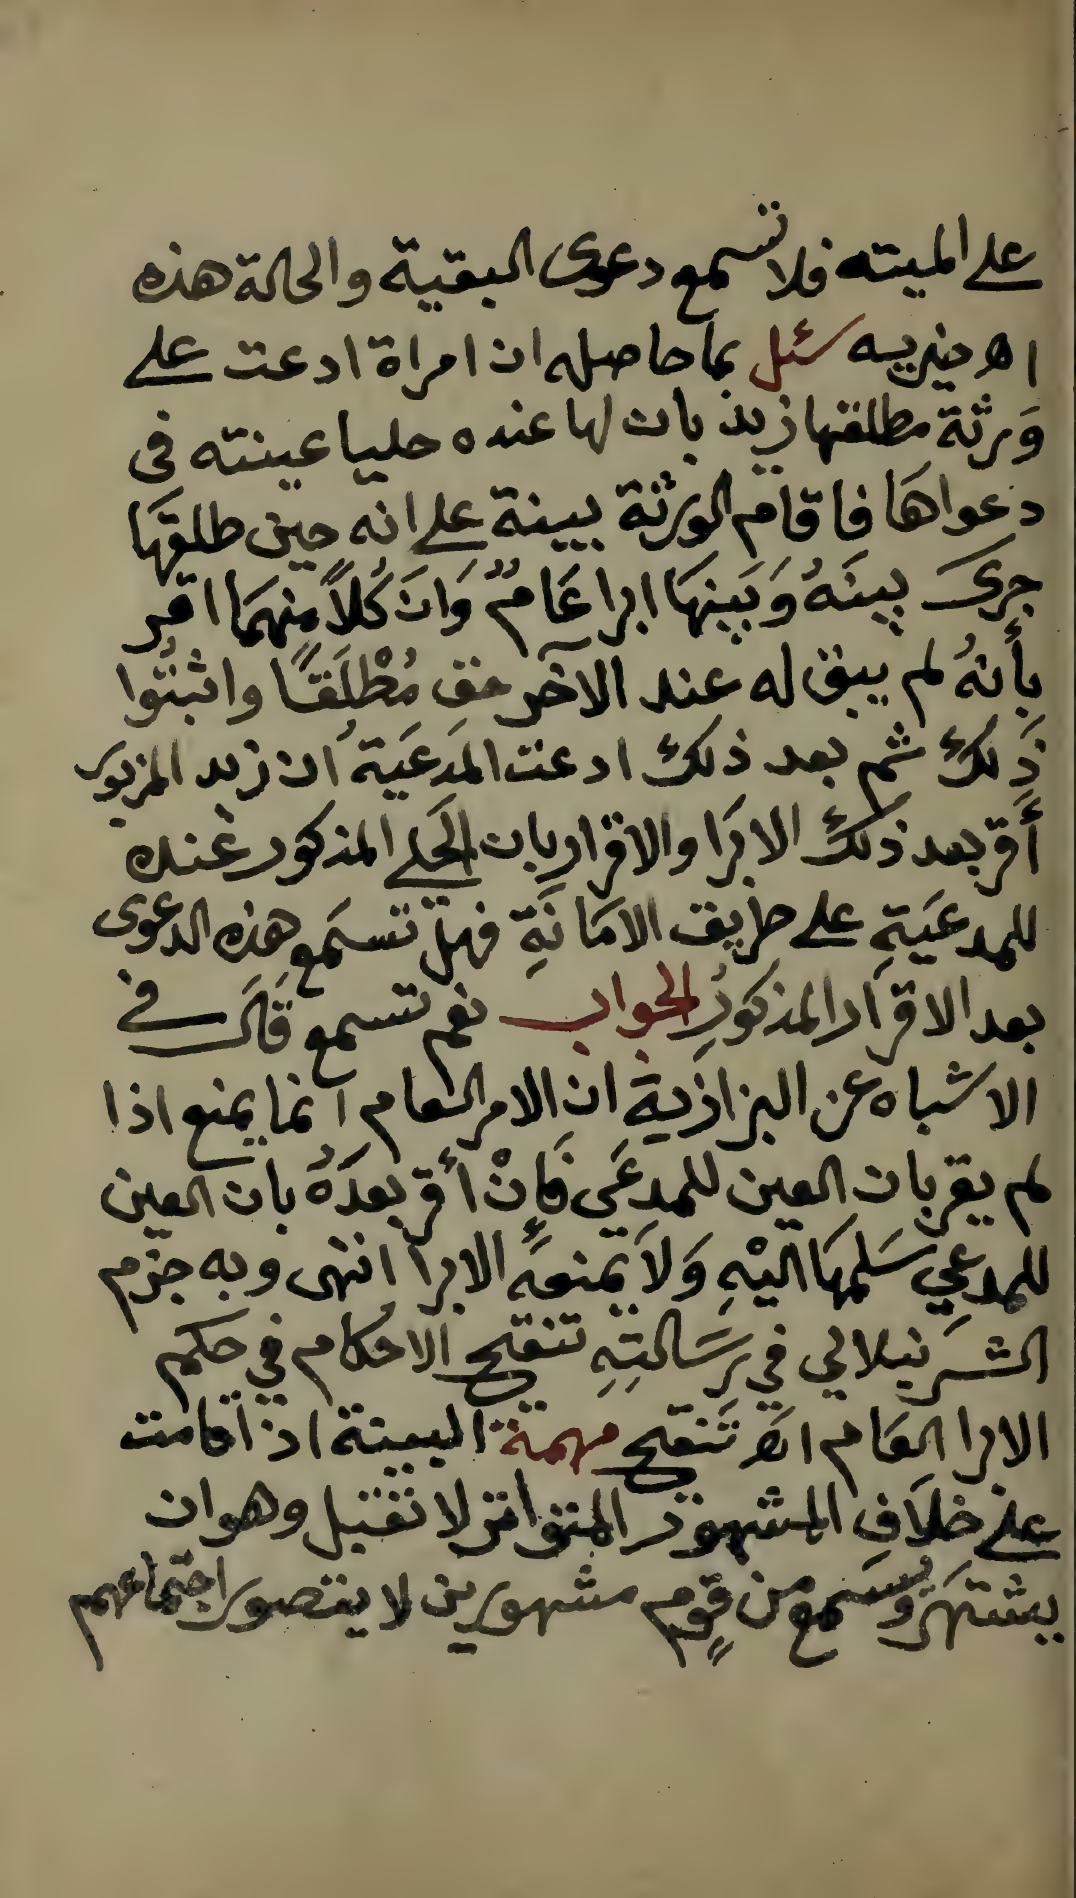 على الميته فلا تسمع دعوى البقية والحالة هذه
اه خيريه سئل بما حاصله ان امراة ادعت على
وَرثة مطلقها زيد بان لها عنده حليا عينته في
دعواها فاقام الورثة بينة على انه حين طلقهَا
جرىَ بينَهُ وَبَينهَا ابرا عَامٌ وَانَ كُلاً منهمَا اقر
بأنهُ لم يبق له عند الآخر حق مُطْلَقًا واثبتُوا
ذَلكَ ثم بعد ذلك ادعت المَدعَيَة ان زيد المزبور
أقر بعد ذلك الابرَا والاقرار بان الحَلي المذكور عنده
للمدعَيَةِ على طريق الامَانَةِ فهل تسمَع هذه الدعوى
بعد الاقرار المذكورِ الجواب نعم تسمع قَالَ في
الاشباه عن البزازية ان الابر العام انما يمنع اذا
لم يقر بان العين للمدعَي فَانْ أقر بعدَهُ بان العين
للمدعي سَلمهَا اليْهِ وَلاَ يمنعهُ الابرا انتهى وبه جزم
الشرنبلالي في رسَالتِهِ تنقيح الاحكام في حكم
الابرا العَام اه تَنقيح مهمة البينة اذا قامت
على خلاَفِ المشهور المتواتر لا تقبل وهو ان
يشتهرَ وَيسمع من قومٍ مشهورين لا يتصور اجتماعهم